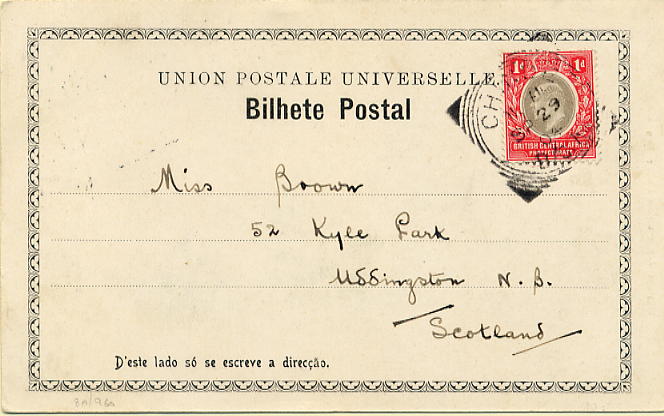 UNION POSTALE UNIVERSELLE
Bilhete Postal
1d 1d
BRITISH CENTRAL AFRICA
PROTECTORATE
29
Miss Brown
52 Kyle Park
Uddingston N.B.
Scotland
D'este lado só se escreve a direcção.